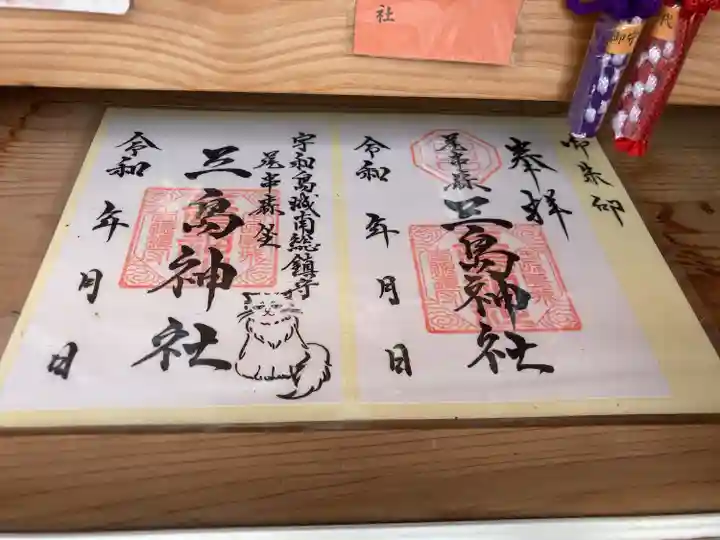 社
御守
御朱印
奉拝
尾串森
三島神社
令和 年 月 日
宇和島城南総鎮守
尾串森坐
三島神社
令和 年 月 日